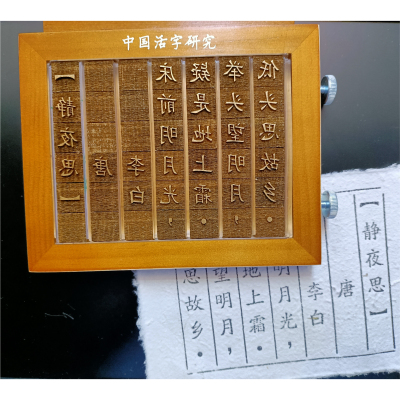 中国活字研究
【静夜思】
唐
李白
床前明月光，
疑是地上霜。
举头望明月，
低头思故乡。
【静夜思】
唐
李白
明月光，
地上霜。
望明月，
思故乡。